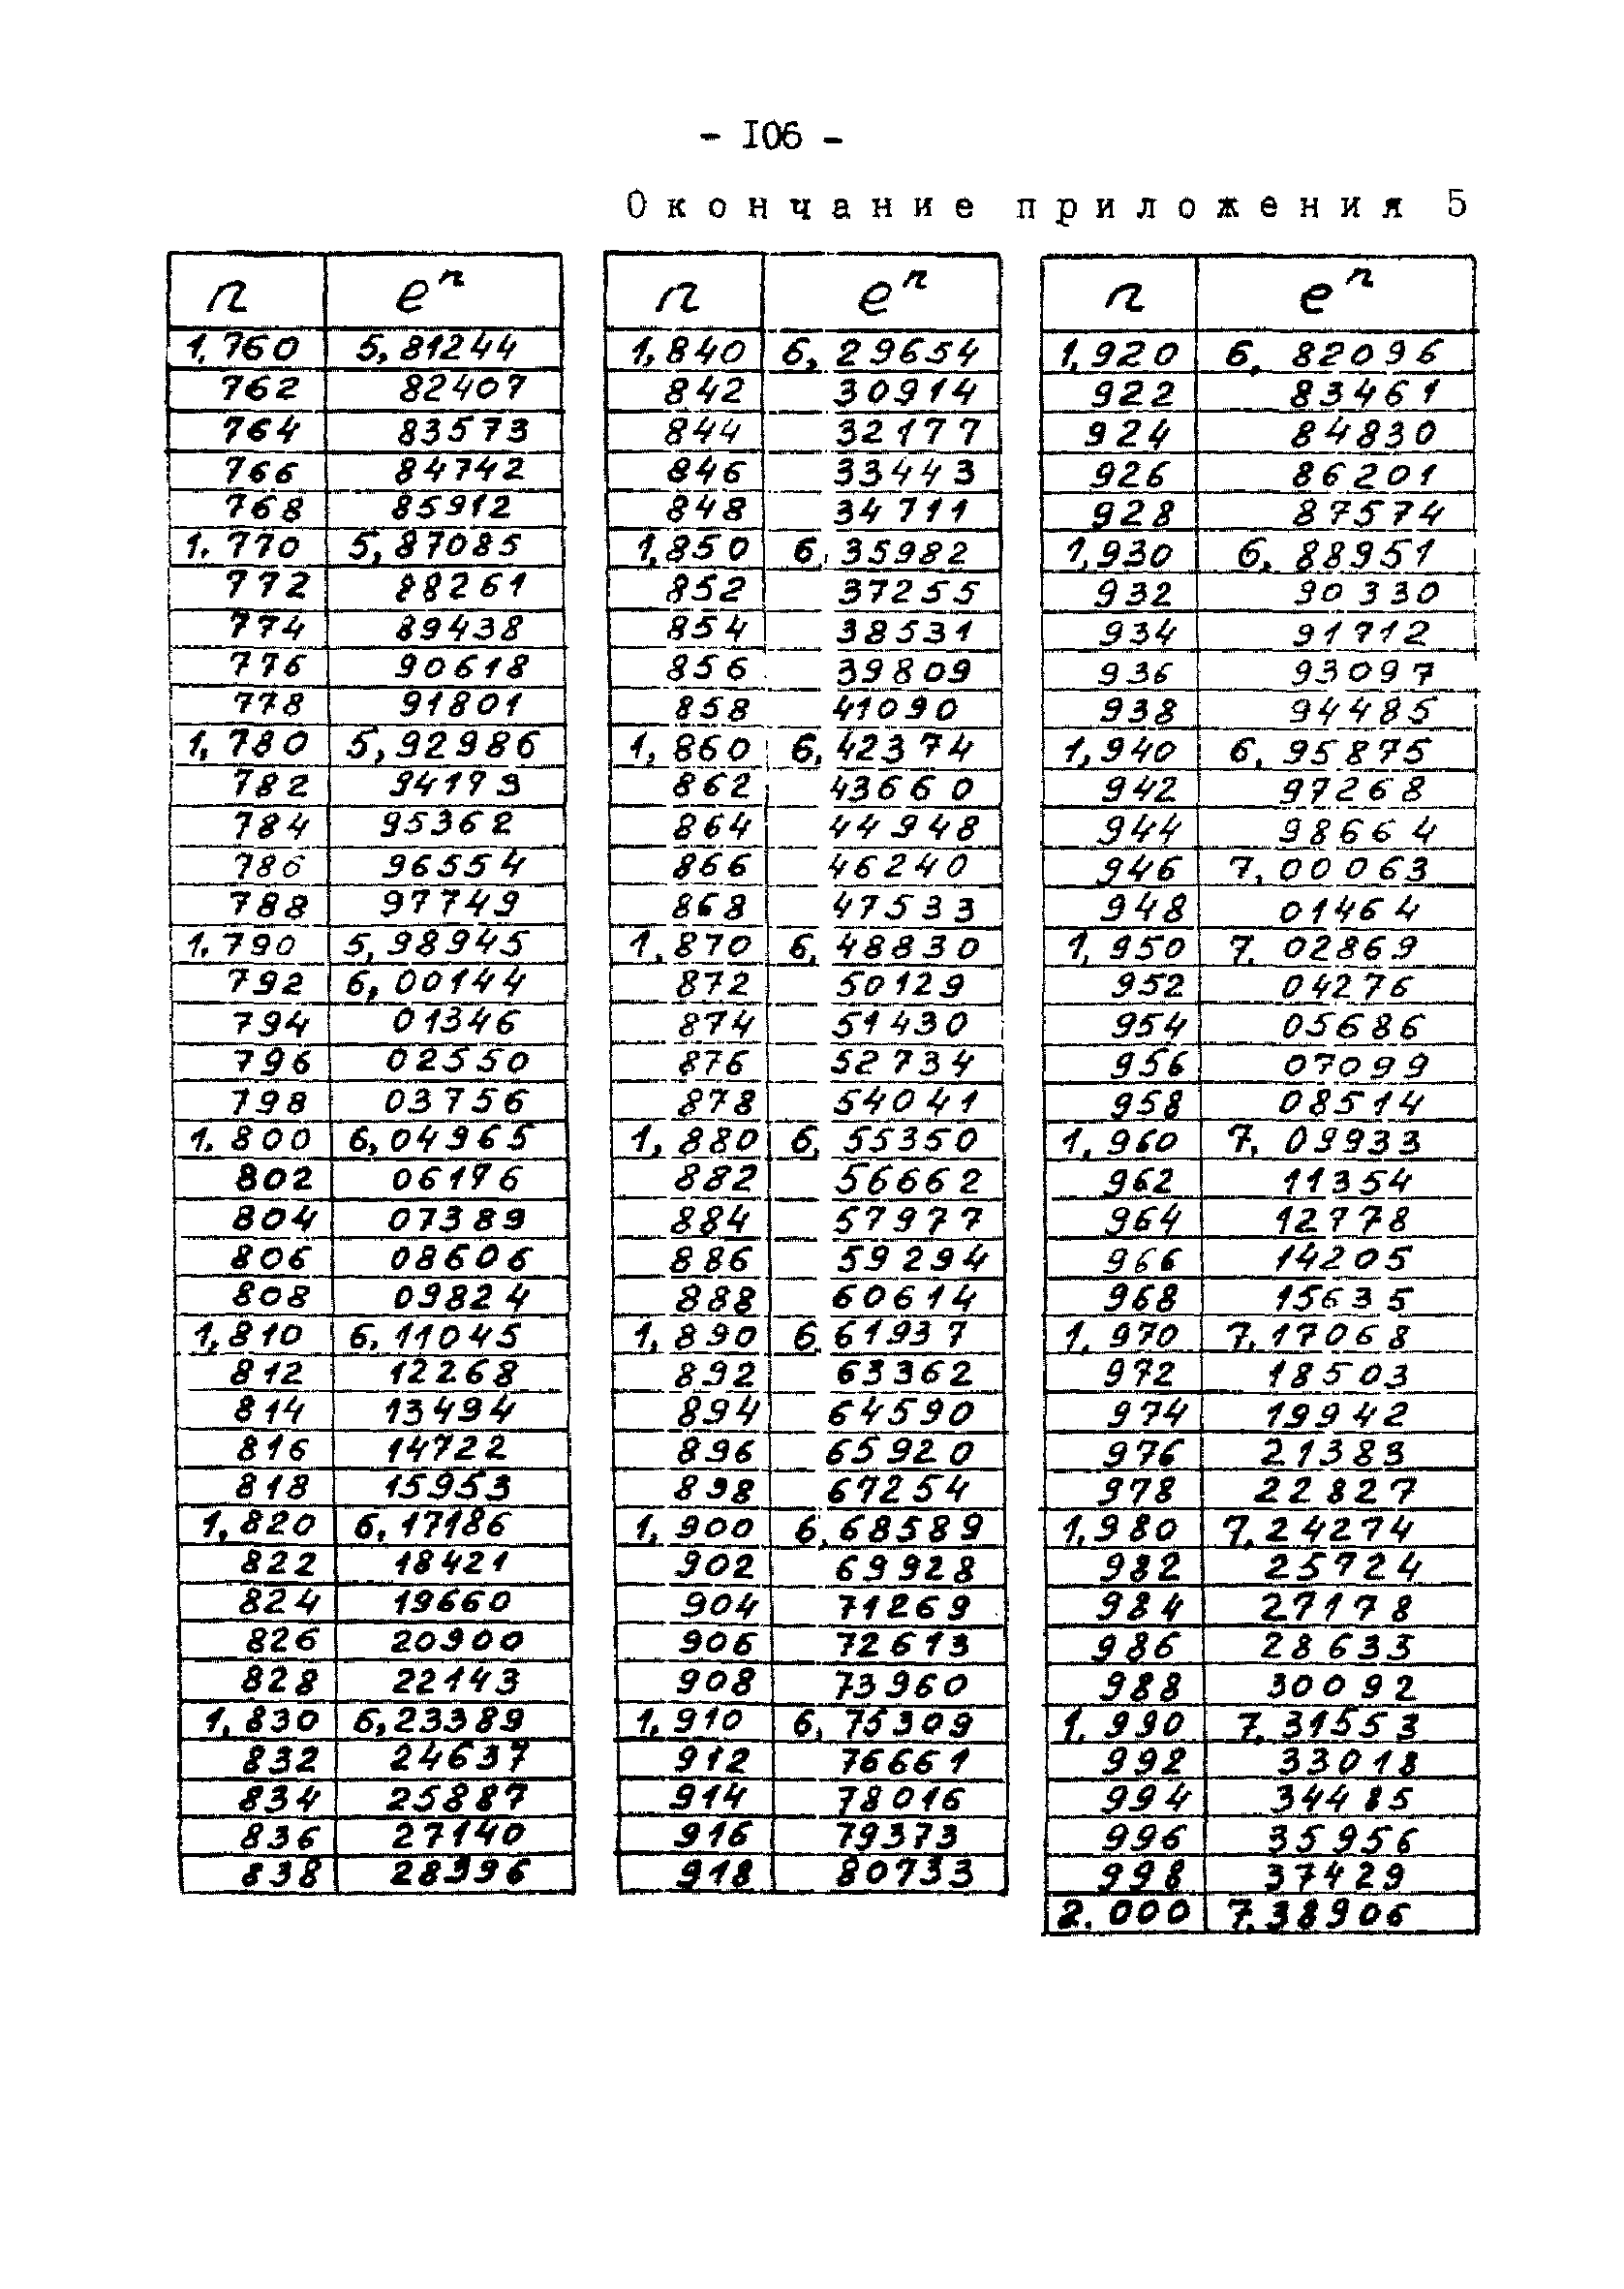 - I06 -
Окончание приложения 5
n e^n n e^n n e^n
1,760 5,81244 1,840 6,29654 1,920 6,82096
762 82407 842 30914 922 83461
764 83573 844 32177 924 84830
766 84742 846 33443 926 86201
768 85912 848 34711 928 87574
1.770 5,87085 1,850 6,35982 1,930 6,88951
772 88261 852 37255 932 90330
774 89438 854 38531 934 91712
776 90618 856 39809 936 93097
778 91801 858 41090 938 94485
1,780 5,92986 1,860 6,42374 1,940 6,95875
782 94173 862 43660 942 97268
784 95362 864 44948 944 98664
786 96554 866 46240 946 7,00063
788 97749 868 47533 948 01464
1.790 5,98945 1,870 6,48830 1,950 7,02869
792 6,00144 872 50129 952 04276
794 01346 874 51430 954 05686
796 02550 876 52734 956 07099
798 03756 878 54041 958 08514
1.800 6,04965 1,880 6,55350 1,960 7,09933
802 06176 882 56662 962 11354
804 07389 884 57977 964 12778
806 08606 886 59294 966 14205
808 09824 888 60614 968 15635
1,810 6,11045 1,890 6,61937 1,970 7,17068
812 12268 892 63362 972 18503
814 13494 894 64590 974 19942
816 14722 896 65920 976 21383
818 15953 898 67254 978 22827
1,820 6,17186 1,900 6,68589 1,980 7,24274
822 18421 902 69928 982 25724
824 19660 904 71269 984 27178
826 20900 906 72613 986 28633
828 22143 908 73960 988 30092
1,830 6,23389 1,910 6,75309 1,990 7,31553
832 24637 912 76661 992 33018
834 25887 914 78016 994 34485
836 27140 916 79373 996 35956
838 28396 918 80733 998 37429
2.000 7,38906